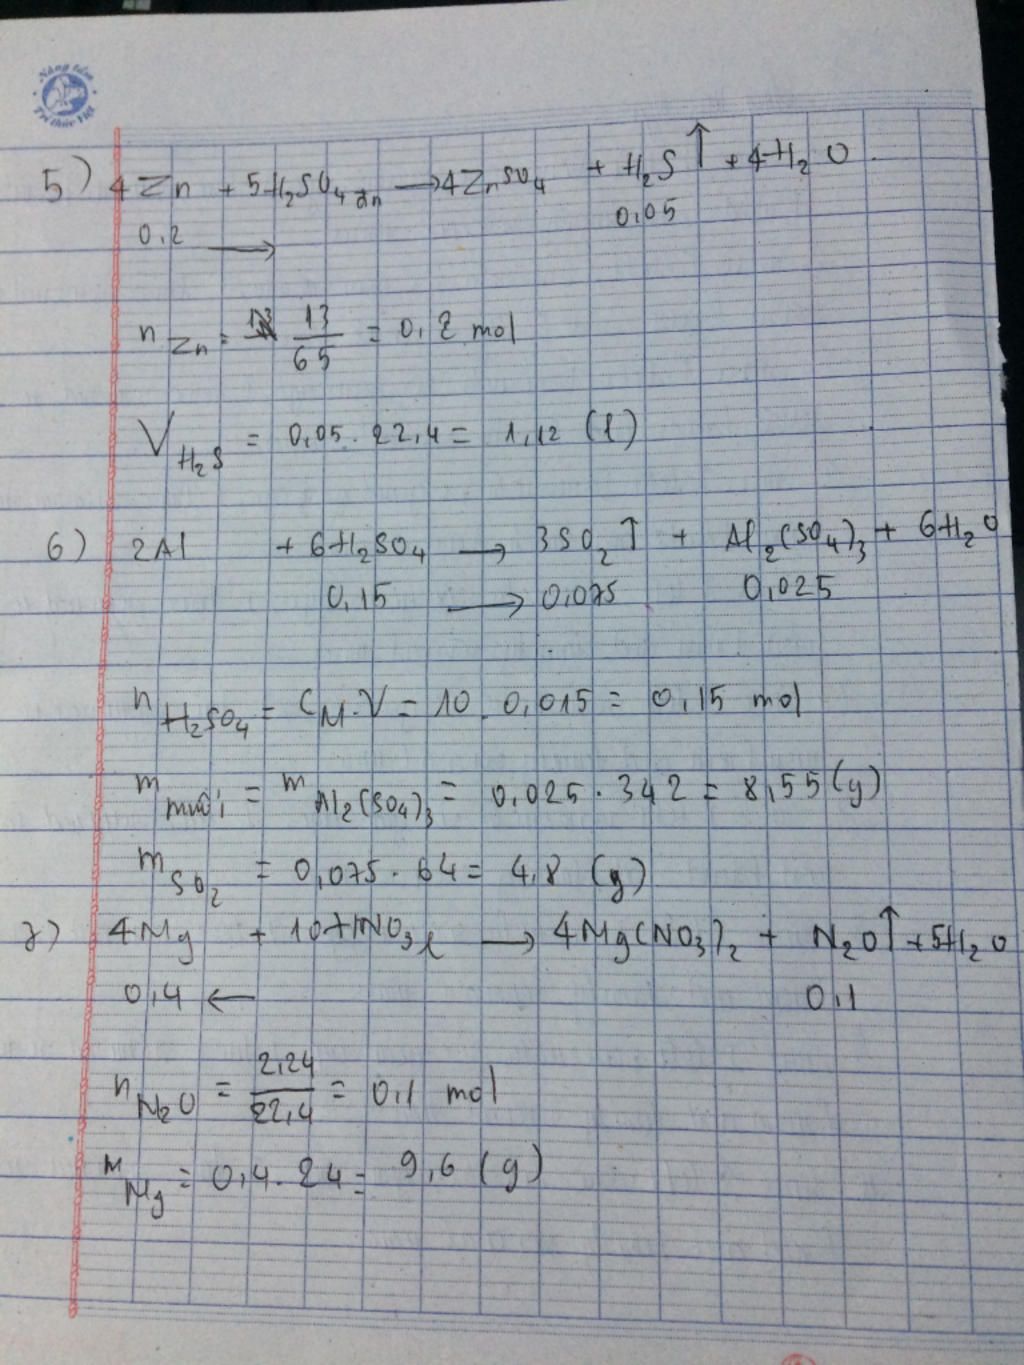 Nâng tầm
Tri thức Việt
5) 4Zn + 5H₂SO₄ đn → 4ZnSO₄ + H₂S ↑ + 4H₂O.
0,2 → 0,05
n Zn = 13/65 = 0,2 mol
V H₂S = 0,05 . 22,4 = 1,12 (l)
6) 2Al + 6H₂SO₄ → 3SO₂ ↑ + Al₂(SO₄)₃ + 6H₂O
0,15 → 0,075 0,025
n H₂SO₄ = C M . V = 10 . 0,015 = 0,15 mol
m muối = m Al₂(SO₄)₃ = 0,025 . 342 = 8,55 (g)
m SO₂ = 0,075 . 64 = 4,8 (g)
7) 4Mg + 10HNO₃ l → 4Mg(NO₃)₂ + N₂O ↑ + 5H₂O
0,4 ← 0,1
n N₂O = 2,24/22,4 = 0,1 mol
m Mg = 0,4 . 24 = 9,6 (g)